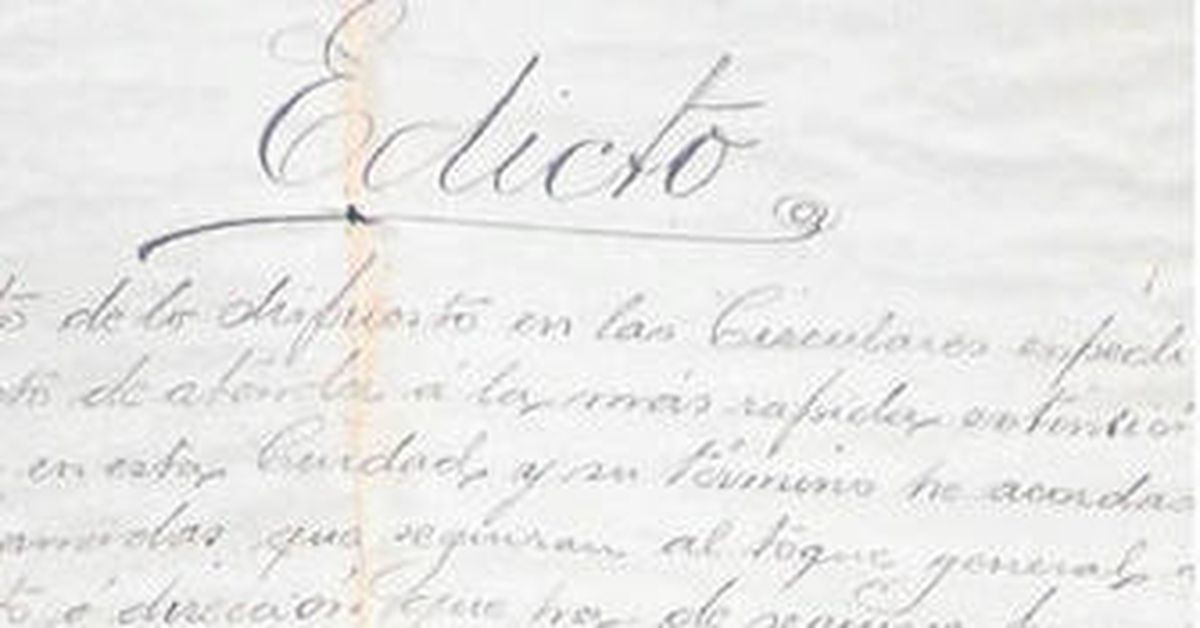 Edicto
de lo dispuesto en las Circulares expedi
de á la más rapida extinció
en esta Ciudad y su término he acordad
que seguiran al toque general
ó dirección que ha de seguir